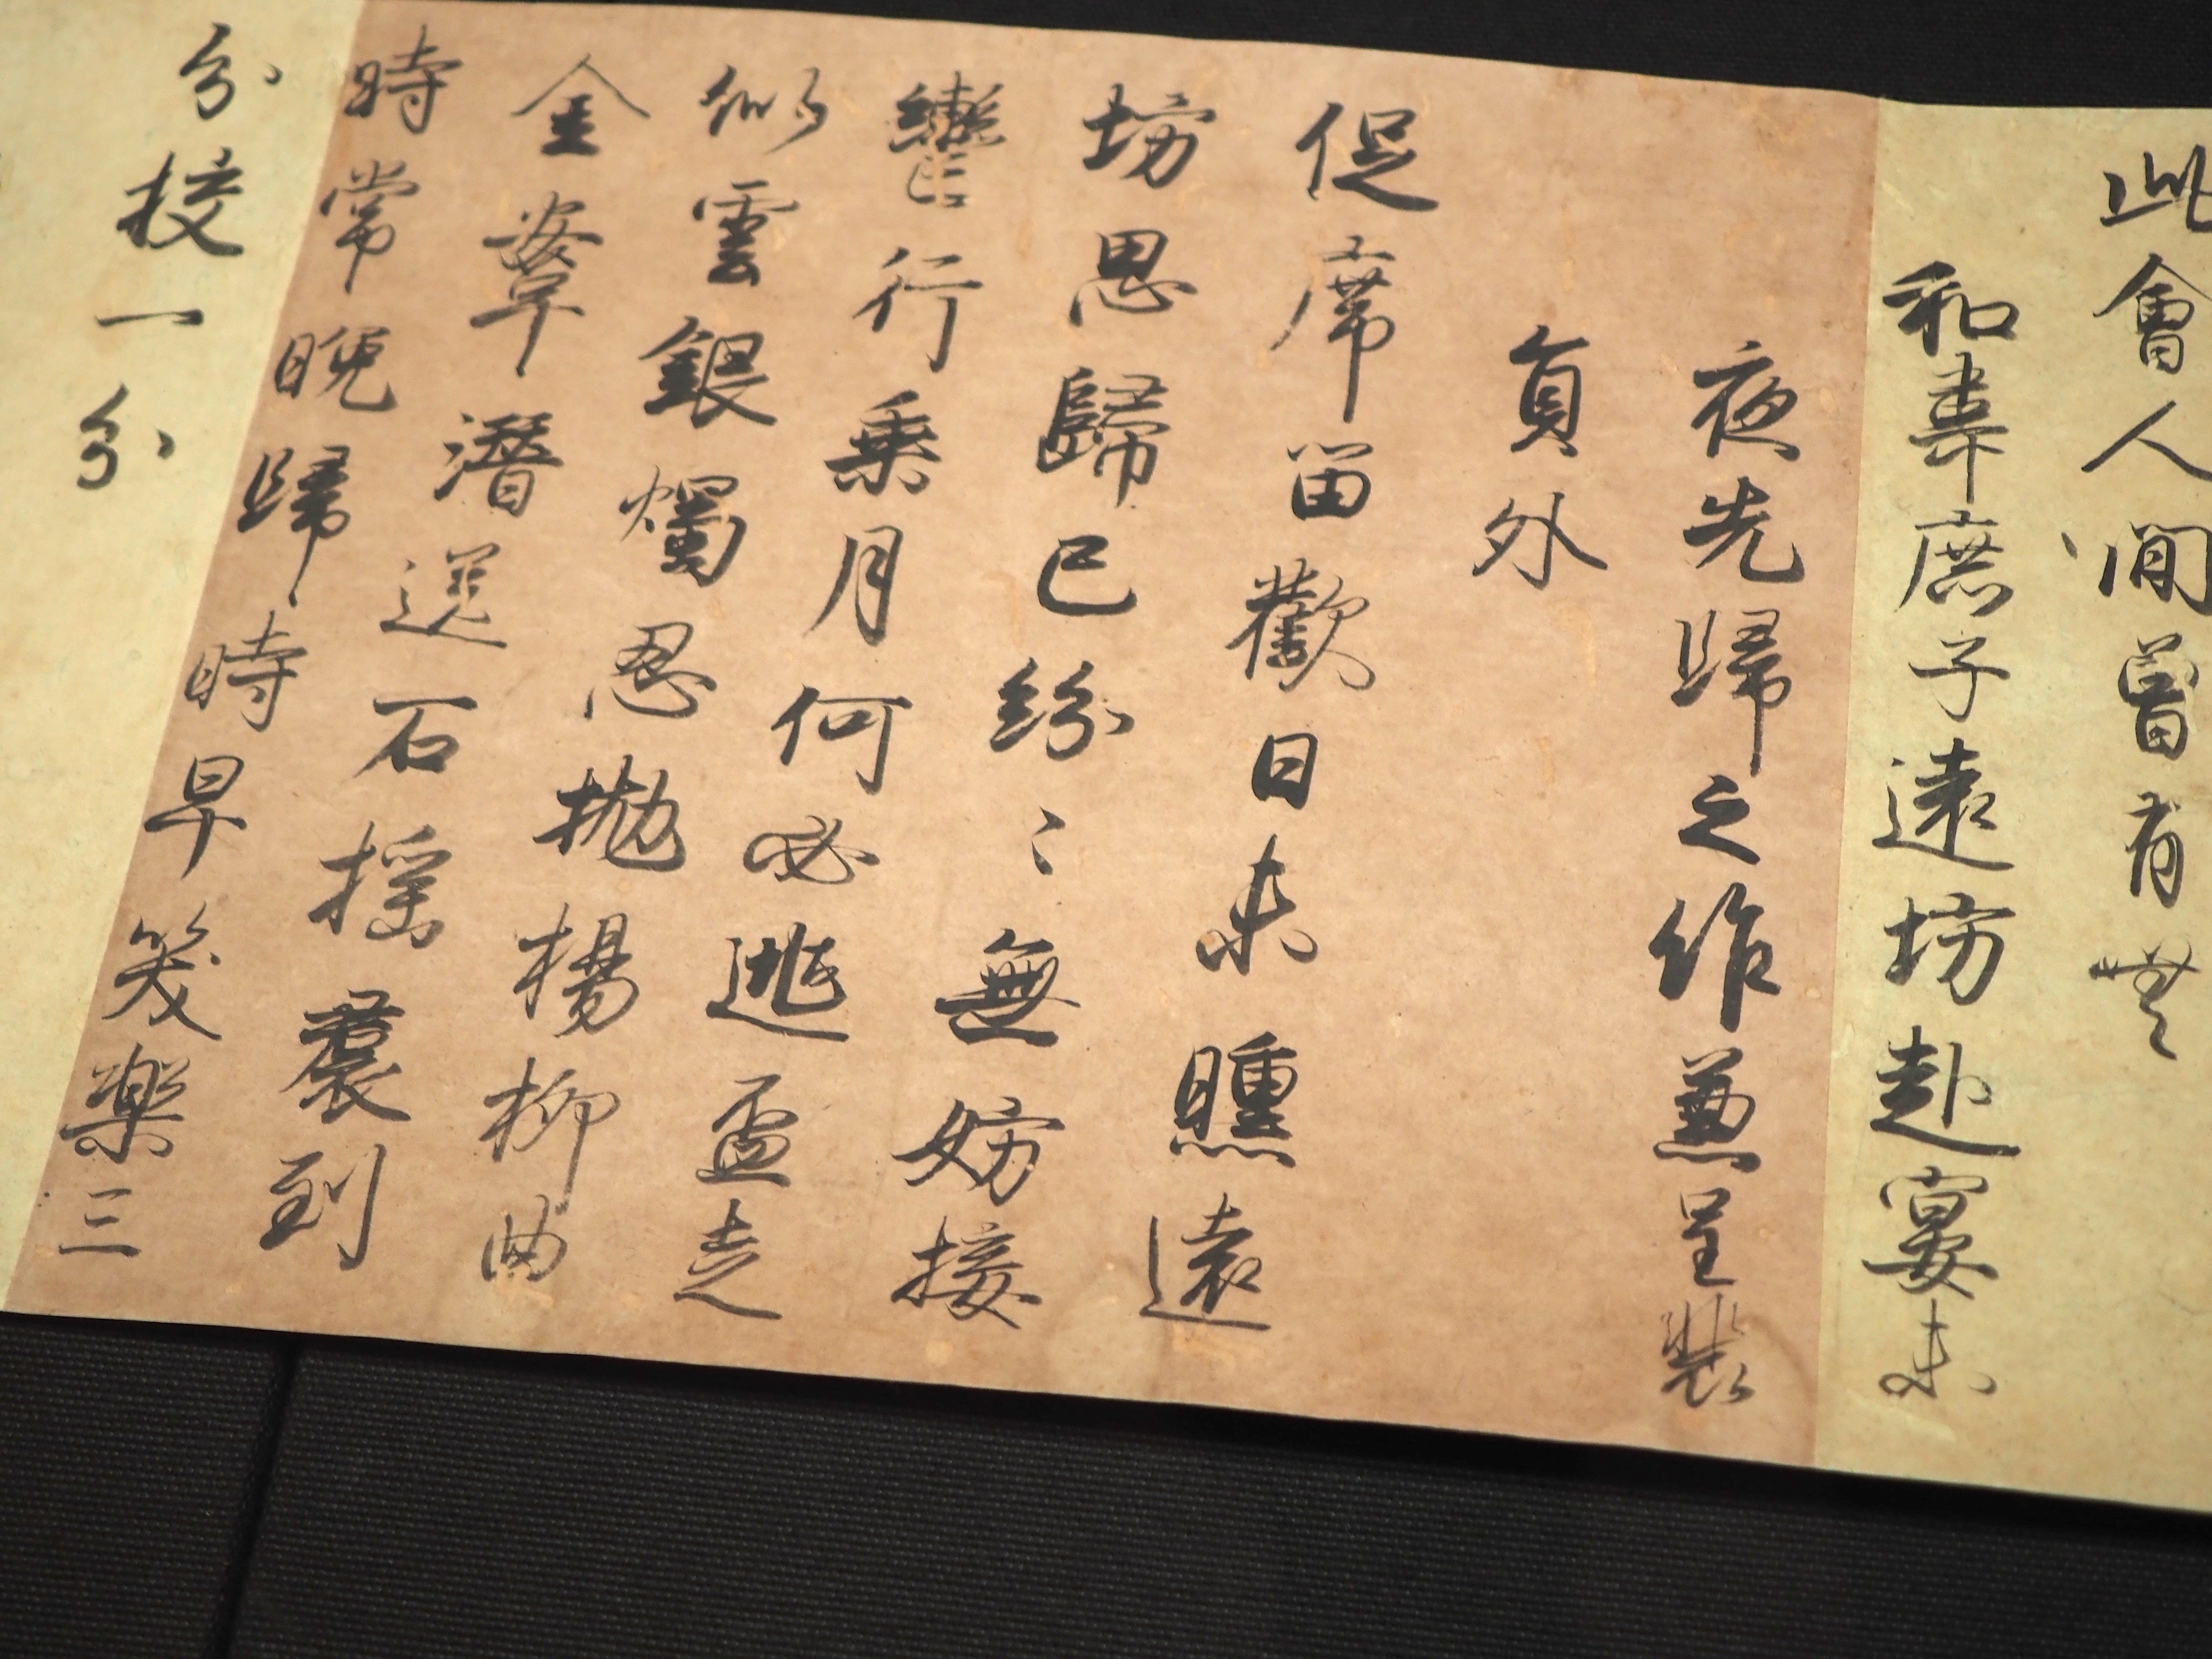 此會人間曾有無
和韋庶子遠坊赴宴未
夜先歸之作兼呈裴
貟外
促席留歡日未曛遠
坊思歸已紛〻無妨接
轡行乗月何必逃盃走
似雲銀燭忍抛楊柳曲
金鞌潛送石揺裠到
時常晚歸時早笶樂三
分校一分